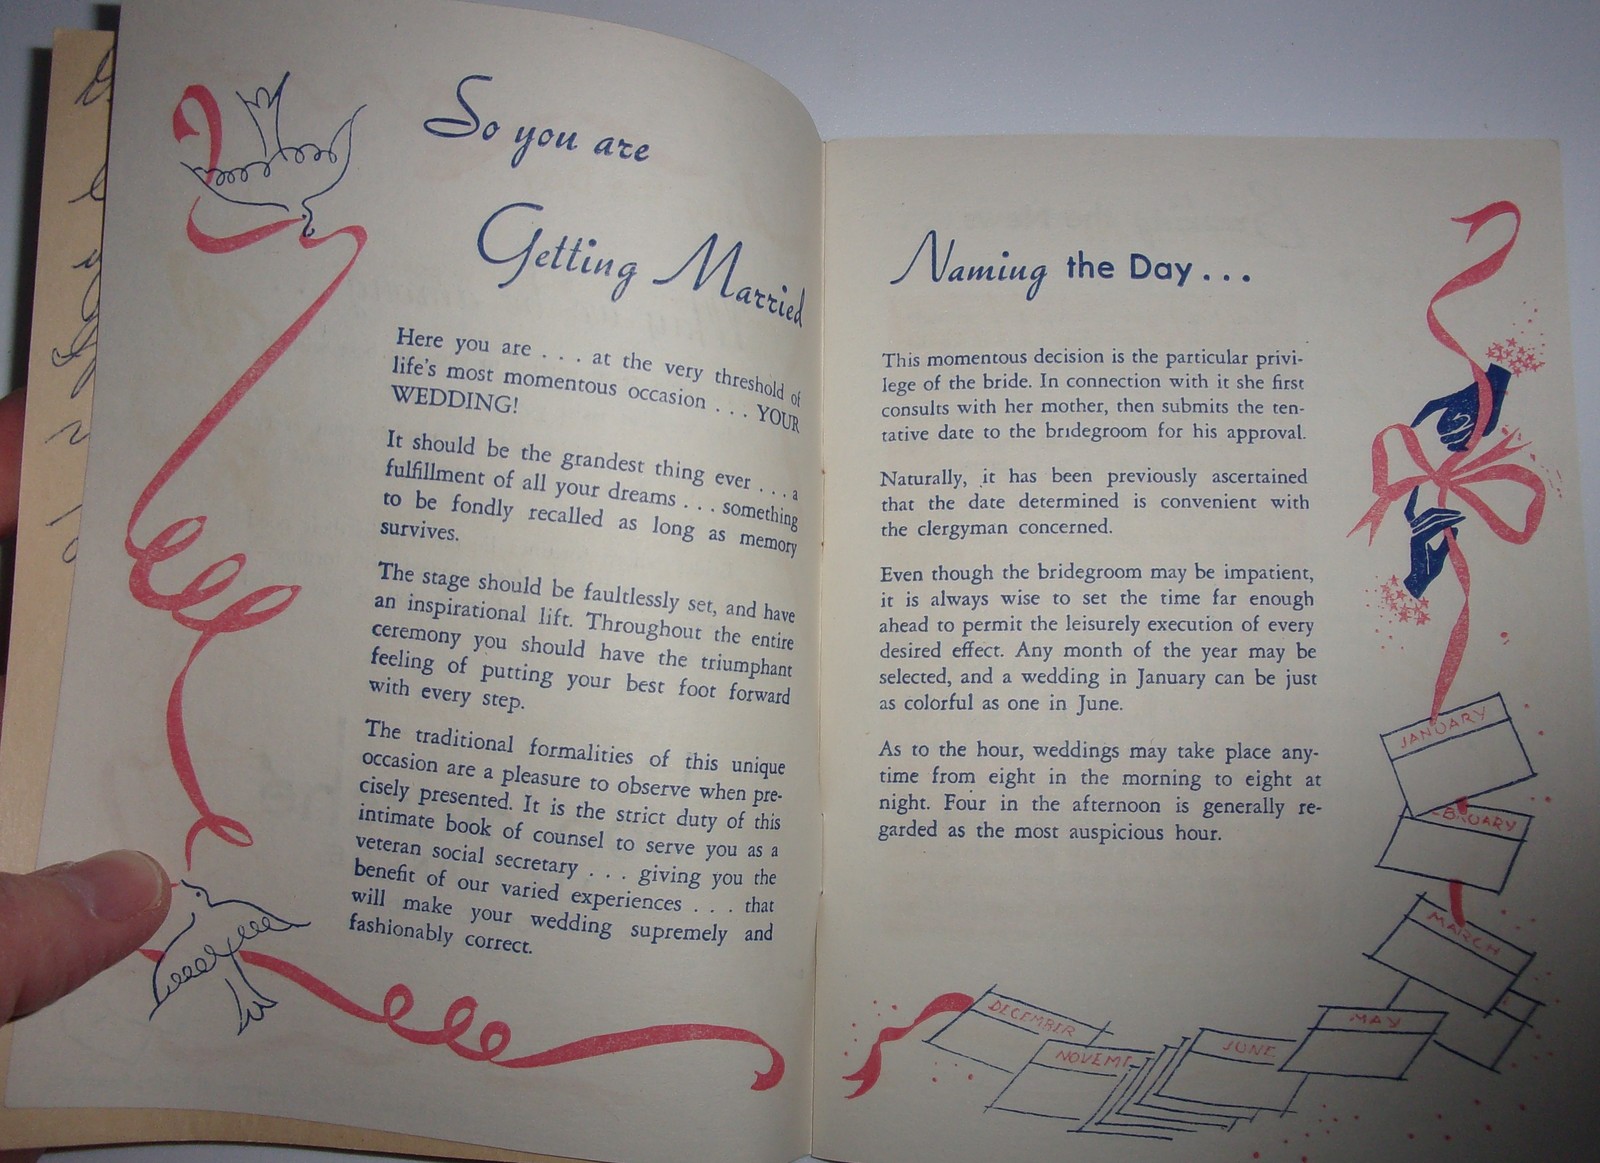 So you are
Getting Married
Here you are . . . at the very threshold of
life's most momentous occasion . . . YOUR
WEDDING!
It should be the grandest thing ever . . . a
fulfillment of all your dreams . . . something
to be fondly recalled as long as memory
survives.
The stage should be faultlessly set, and have
an inspirational lift. Throughout the entire
ceremony you should have the triumphant
feeling of putting your best foot forward
with every step.
The traditional formalities of this unique
occasion are a pleasure to observe when pre-
cisely presented. It is the strict duty of this
intimate book of counsel to serve you as a
veteran social secretary . . . giving you the
benefit of our varied experiences . . . that
will make your wedding supremely and
fashionably correct.
Naming the Day...
This momentous decision is the particular privi-
lege of the bride. In connection with it she first
consults with her mother, then submits the ten-
tative date to the bridegroom for his approval.
Naturally, it has been previously ascertained
that the date determined is convenient with
the clergyman concerned.
Even though the bridegroom may be impatient,
it is always wise to set the time far enough
ahead to permit the leisurely execution of every
desired effect. Any month of the year may be
selected, and a wedding in January can be just
as colorful as one in June.
As to the hour, weddings may take place any-
time from eight in the morning to eight at
night. Four in the afternoon is generally re-
garded as the most auspicious hour.
JANUARY
EBRUARY
MARCH
MAY
JUNE
NOVEM
DECEMBER